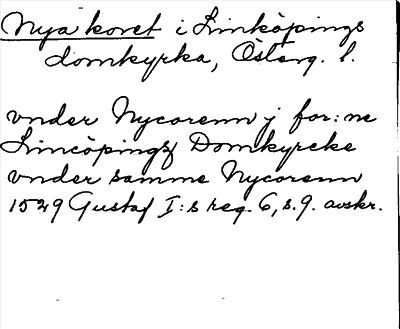 Nya koret i Linköpings
domkyrka, Österg. l.
vnder Nycorenn j for:ne
Linicöpingz Domkyrcke
vnder samme Nycorenn
1529 Gustaf I:s reg. 6, s. 9. avskr.